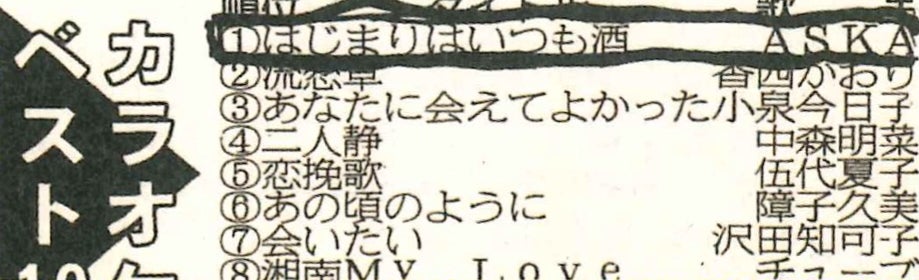 カラオケ
ベスト10
順位 タイトル 歌手
①はじまりはいつも酒 ASKA
②流恋草 香西かおり
③あなたに会えてよかった 小泉今日子
④二人静 中森明菜
⑤恋挽歌 伍代夏子
⑥あの頃のように 障子久美
⑦会いたい 沢田知可子
⑧湘南My Love チューブ